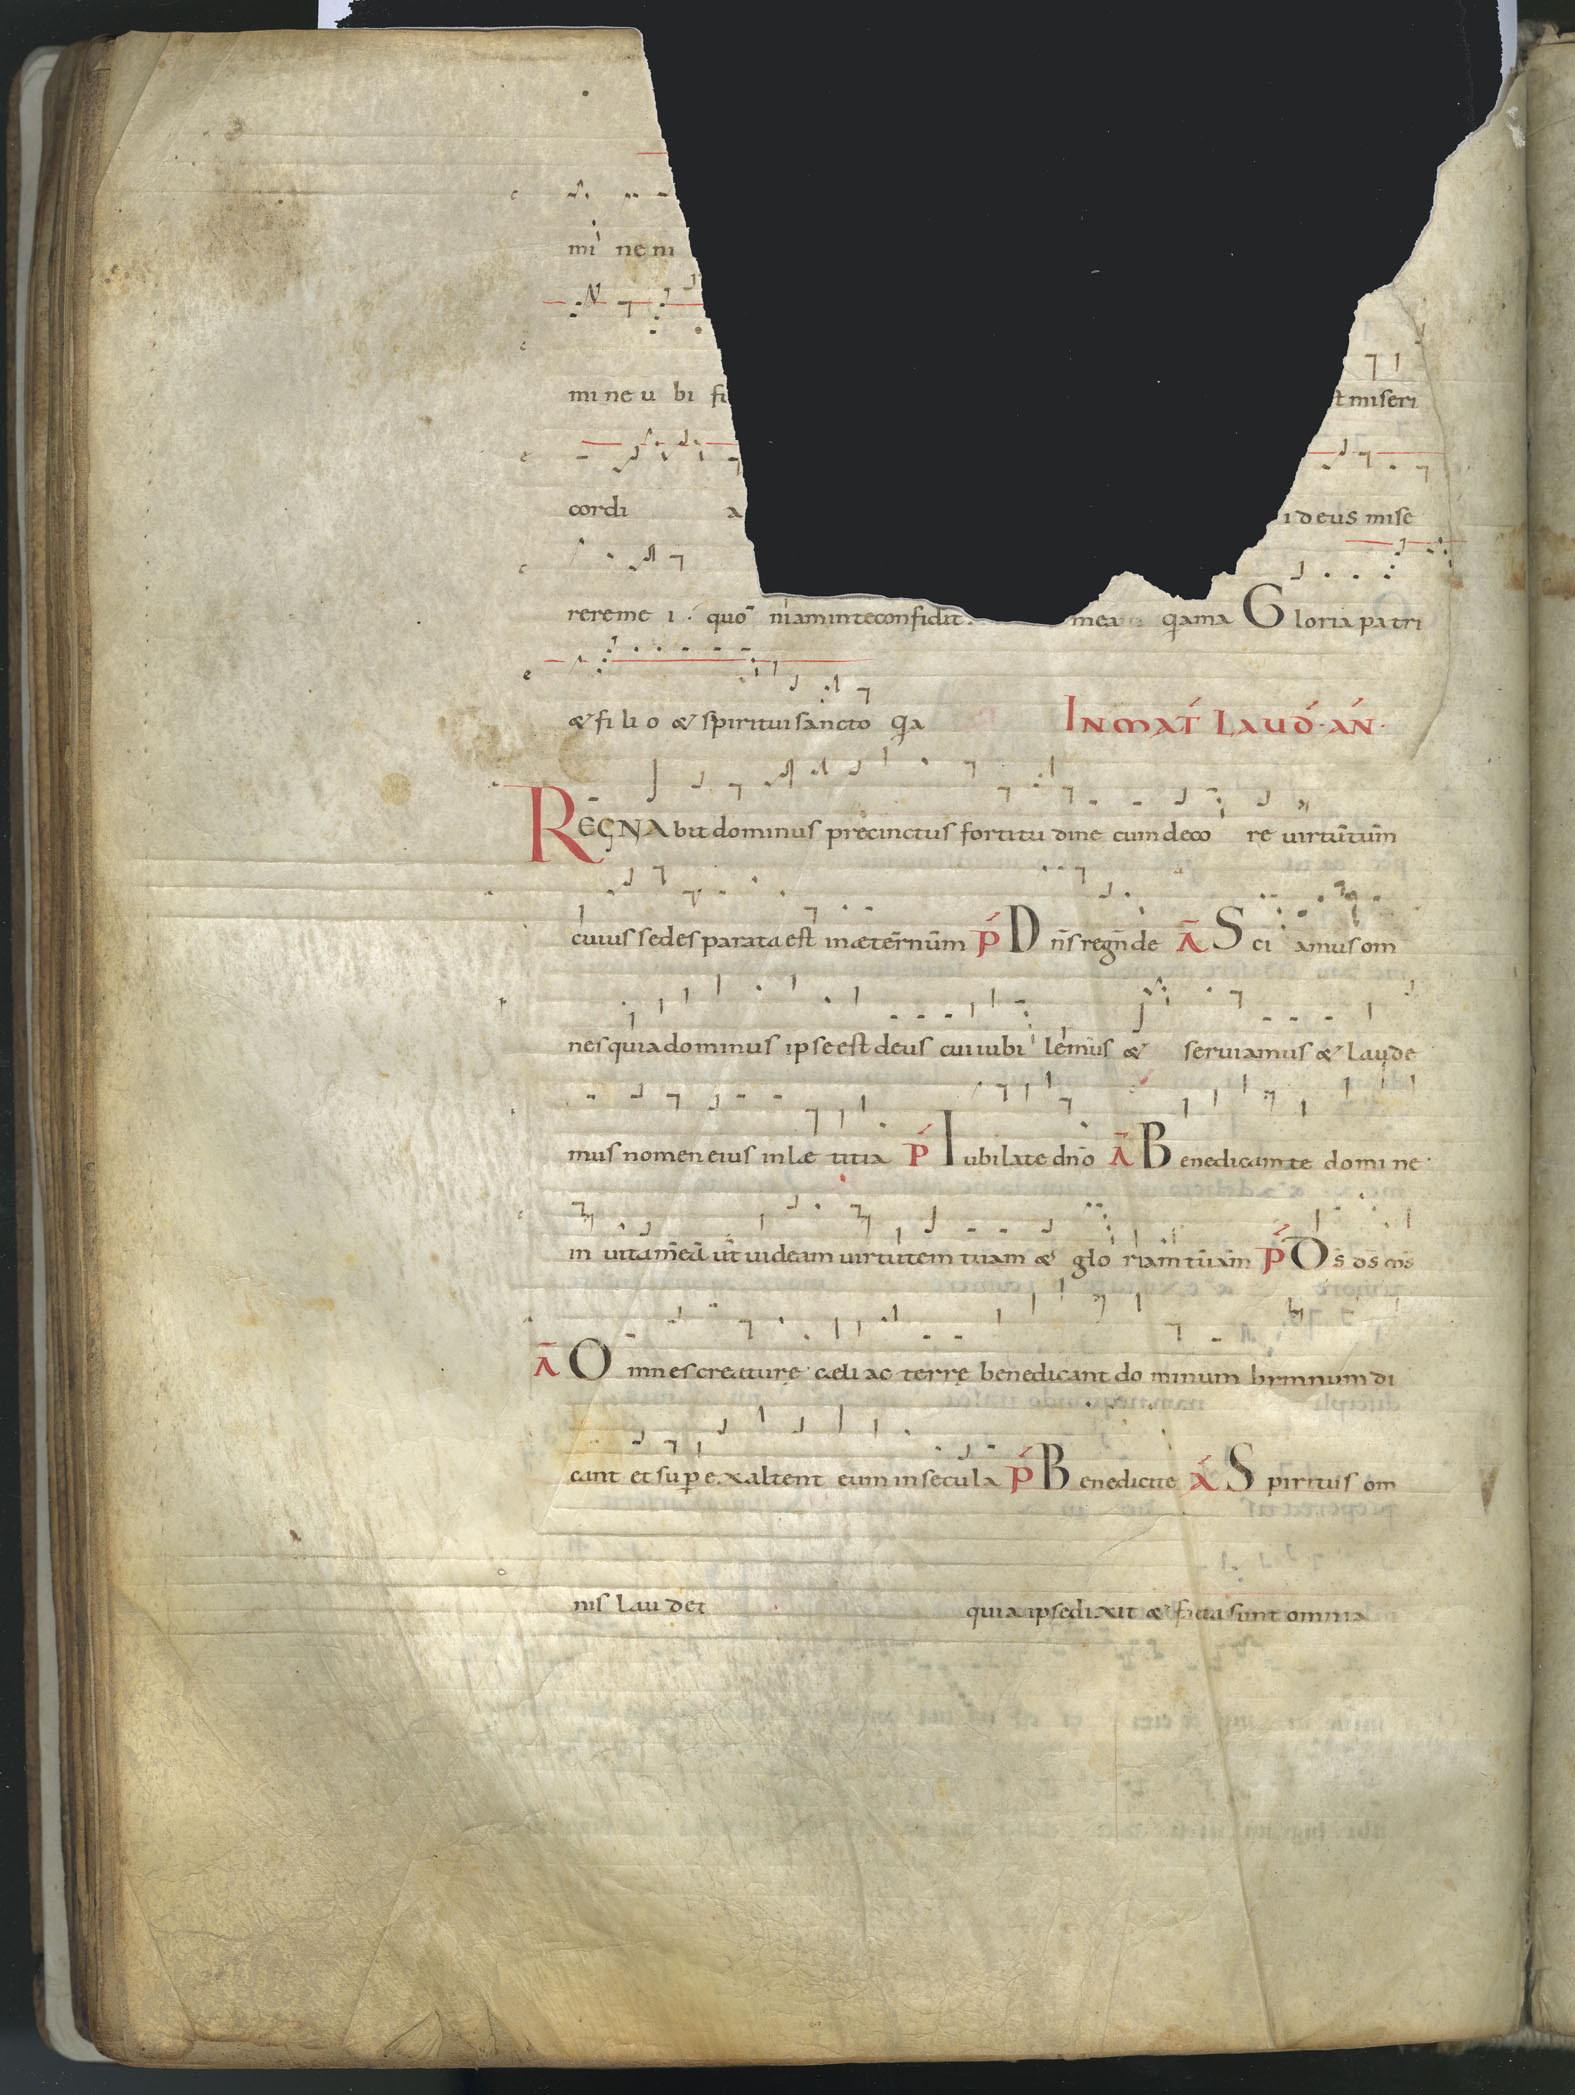 mi ne m
mi ne u bi fi st miseri
cordi a i deus mise
rere me i · quo ̄ niam in te confidit mea qama Gloria patri
& fi li o & spiritui sancto qa INMAT LAUD · AN ·
REGNAbit dominus precinctus fortitu dine cum deco re uirtutum
cuius sedes parata est in æternum P Dn̄s regn̄ de A Sci amus om
nes quia dominus ipse est deus cui iubi lemus & seruiamus & laude
mus nomen eius in læ titia P Iubilate dn̄o A Benedicam te domi ne
in uita mea ut uideam uirtutem tuam & glo riam tuam P D̄s d̄s m̄s
A Omnes creature cæli ac terrę benedicant do minum hymnum di
cant et sup exaltent eum in secula P Benedicite A Spiritus om
nis laudet quia ipse dixit & facta sunt omnia